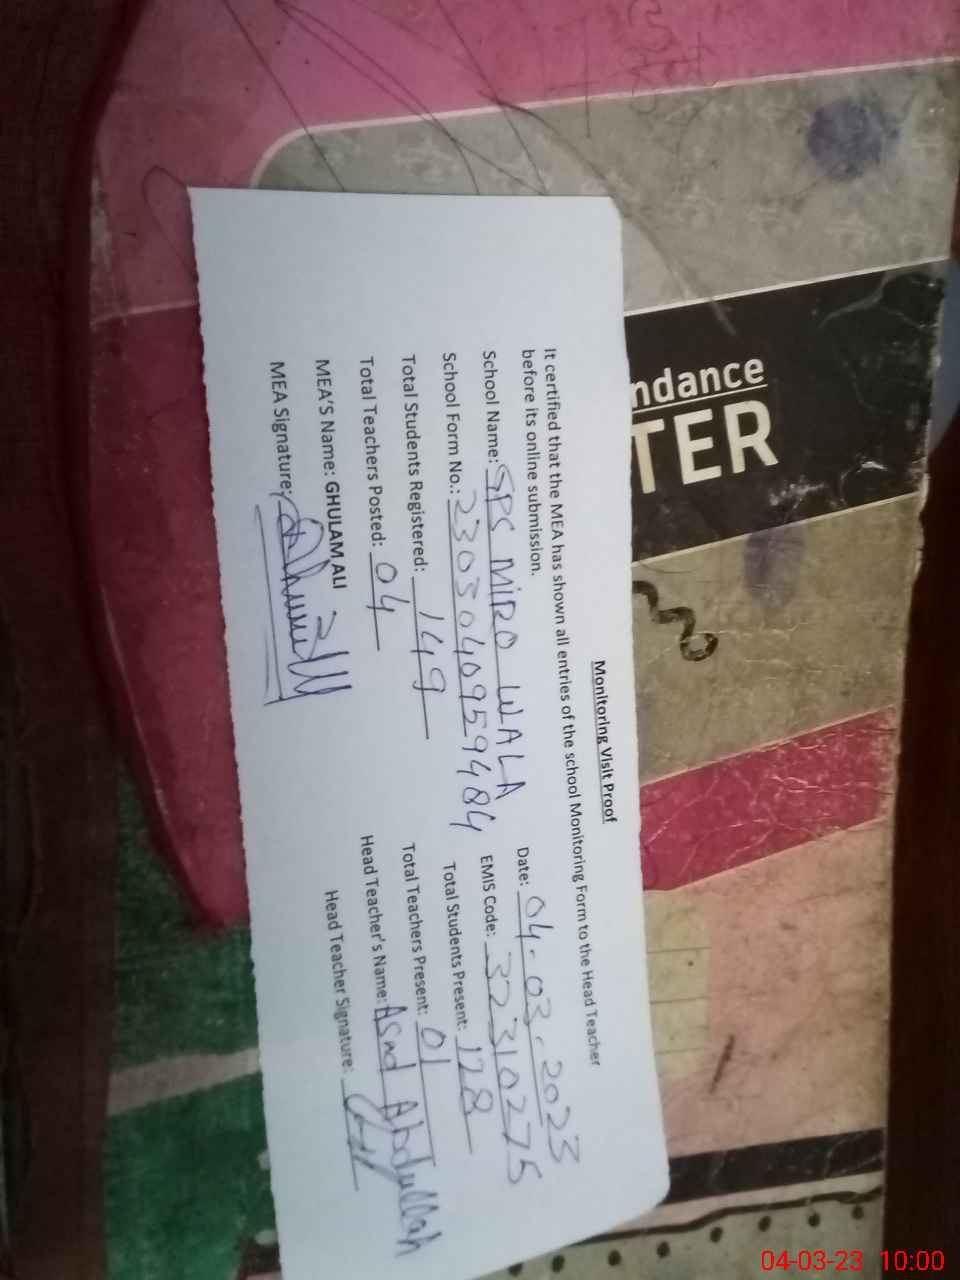 Monitoring Visit Proof
It certified that the MEA has shown all entries of the school Monitoring Form to the Head Teacher
before its online submission.
Date: 04-03-2023
School Name: GPS MIRO WALA
EMIS Code: 32310275
School Form No.: 2303040959484
Total Students Present: 128
Total Students Registered: 149
Total Teachers Present: 01
Total Teachers Posted: 04
Head Teacher's Name: Asad Abdullah
MEA'S Name: GHULAM ALI
Head Teacher Signature:
MEA Signature:
ndance
TER
04-03-23 10:00